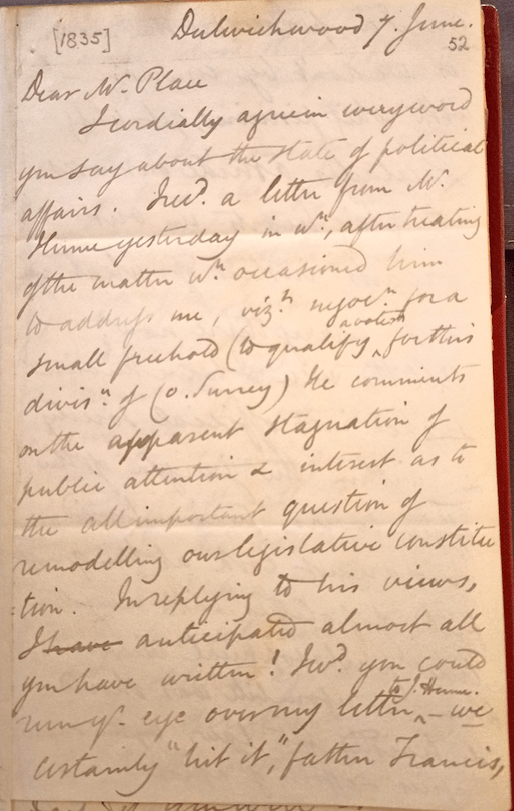 [1835]
Dulwichwood 7. June.
52
Dear Mr. Place
I cordially agree in every word
you say about the state of political
affairs. I recd. a letter from Mr.
Hume yesterday in wh., after treating
of the matter wh. occasioned him
to address me, vizt. negocn. for a
small freehold (to qualify a voter for this
divisn. of Co. Surrey) He comments
on the apparent stagnation of
public attention & interest as to
the all important question of
remodelling our legislative constitu
tion. In replying to his views,
I have anticipated almost all
you have written! I wd. you could
run yr. eye over my letter to J. Hume. – we
certainly "hit it," father Francis,